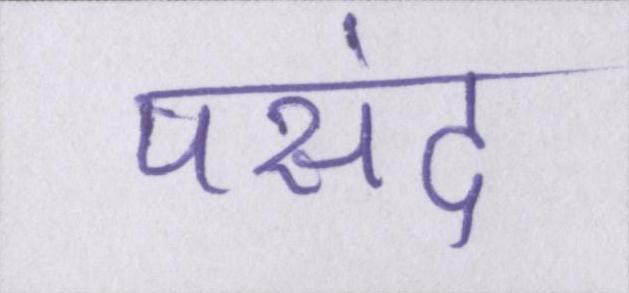 पसंद